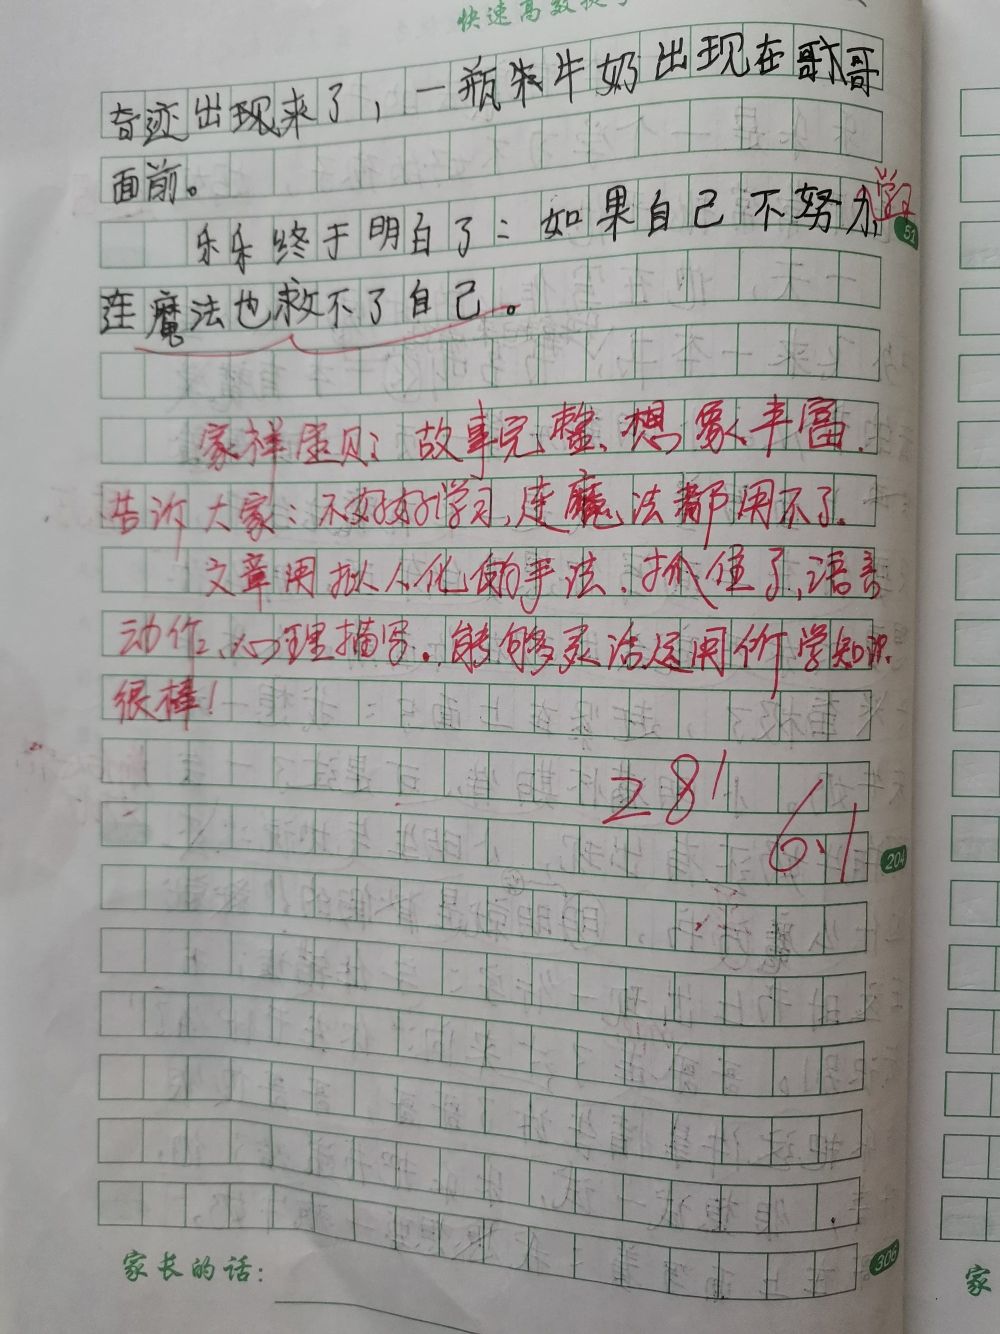 快速高效提
奇迹出现来了，一瓶牛奶出现在哥哥
面前。
乐乐终于明白了：如果自己不努力学习
连魔法也救不了自己。
家祥宝贝：故事完整、想象丰富.
告诉大家：不好好学习,连魔法都用不了.
文章用拟人化的手法.抓住了,语言
动作、心理描写.能够灵活运用所学知识.
很棒！
28'
6.1
51
204
306
家长的话：
家